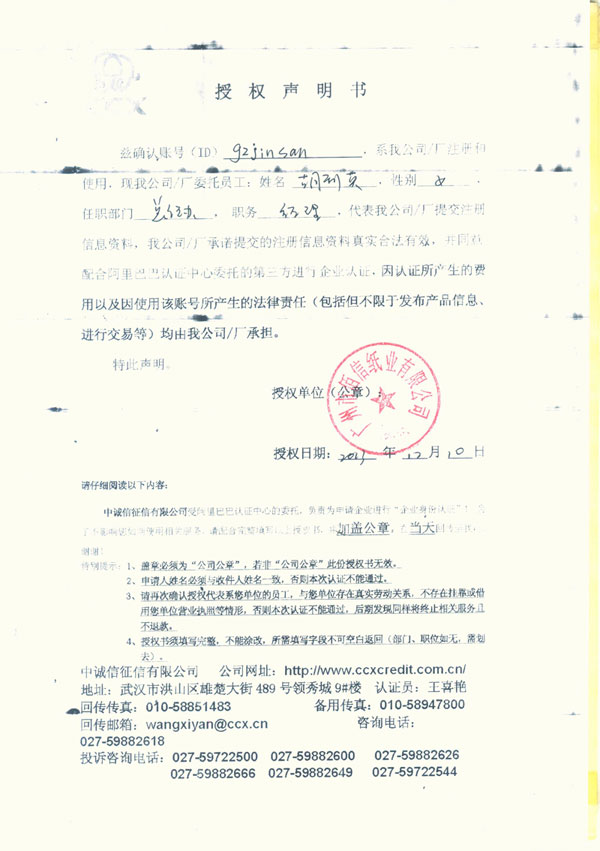 授权声明书
兹确认账号（ID） gzjinsan ，系我公司/厂注册和
使用，现我公司/厂委托员工：姓名 胡利真 ，性别 女 ，
任职部门 总经办 ，职务 经理 ，代表我公司/厂提交注册
信息资料，我公司/厂承诺提交的注册信息资料真实合法有效，并同意
配合阿里巴巴认证中心委托的第三方进行企业认证，因认证所产生的费
用以及因使用该账号所产生的法律责任（包括但不限于发布产品信息、
进行交易等）均由我公司/厂承担。
特此声明。
授权单位（公章）：
广州市佰信纸业有限公司
授权日期： 年 12 月 10 日
请仔细阅读以下内容：
中诚信征信有限公司受阿里巴巴认证中心的委托，负责为申请企业进行“企业身份认证”！
加盖公章，在当天
谢谢！
特别提示：1、盖章必须为“公司公章”，若非“公司公章”此份授权书无效。
2、申请人姓名必须与收件人姓名一致，否则本次认证不能通过。
3、请再次确认授权代表系您单位的员工，与您单位存在真实劳动关系，不存在挂靠或借
用您单位营业执照等情形，否则本次认证不能通过，后期发现同样将终止相关服务且
不退款。
4、授权书须填写完整，不能涂改，所需填写字段不可空白返回（部门、职位如无，需划
去）。
中诚信征信有限公司 公司网址：http://www.ccxcredit.com.cn/
地址：武汉市洪山区雄楚大街 489 号领秀城 9#楼 认证员：王喜艳
回传传真：010-58851483 备用传真：010-58947800
回传邮箱：wangxiyan@ccx.cn 咨询电话：
027-59882618
投诉咨询电话：027-59722500 027-59882600 027-59882626
027-59882666 027-59882649 027-59722544